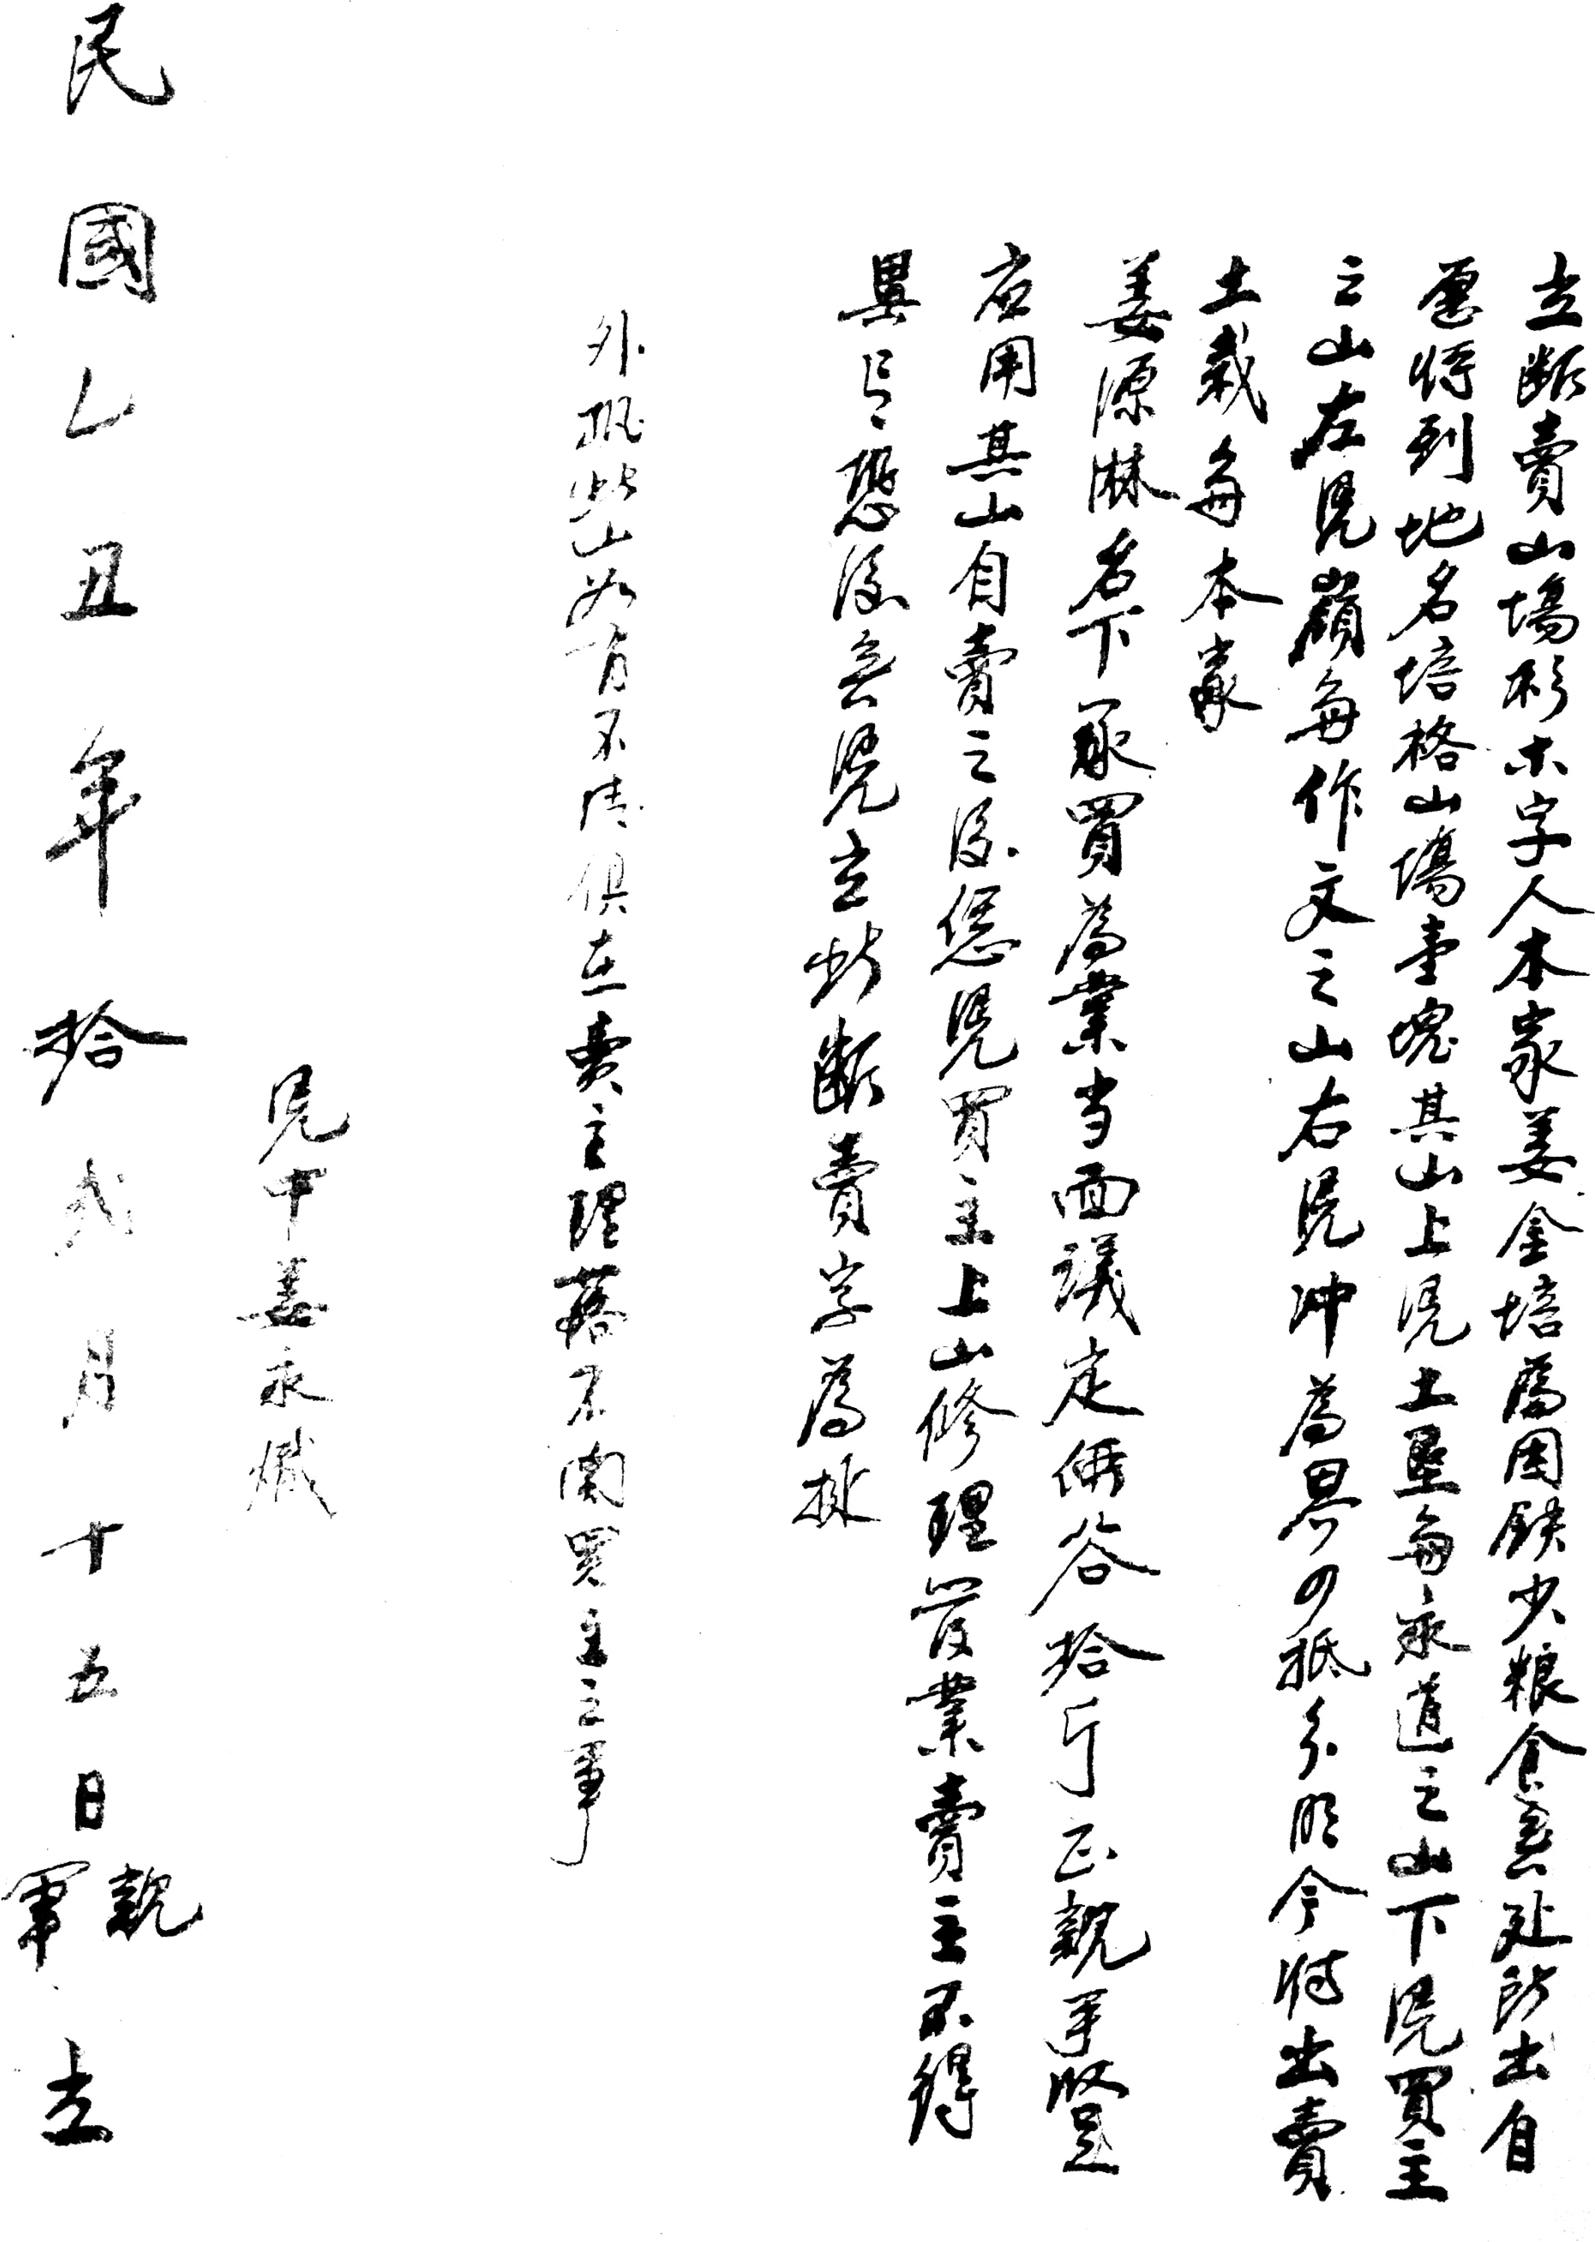 立断賣山場杉木字人本家姜金培為因缺少粮食無处所出自
愿将到地名培格山場壹塊其山上凭土墾与永道之山下凭買主
之山左凭嶺与作文之山右凭冲為界四抵分明今将出賣
土栽与本家
姜源淋名下承買為業当面議定價谷拾斤正親手收足
应用其山自賣之後任憑凭買主上山修理管業賣主不得
異言恐後無凭立此断賣字為據
外批此山如有不清俱在賣主理落不関買主之事
凭中姜永熾
民國乙丑年拾弍月十五日親筆立